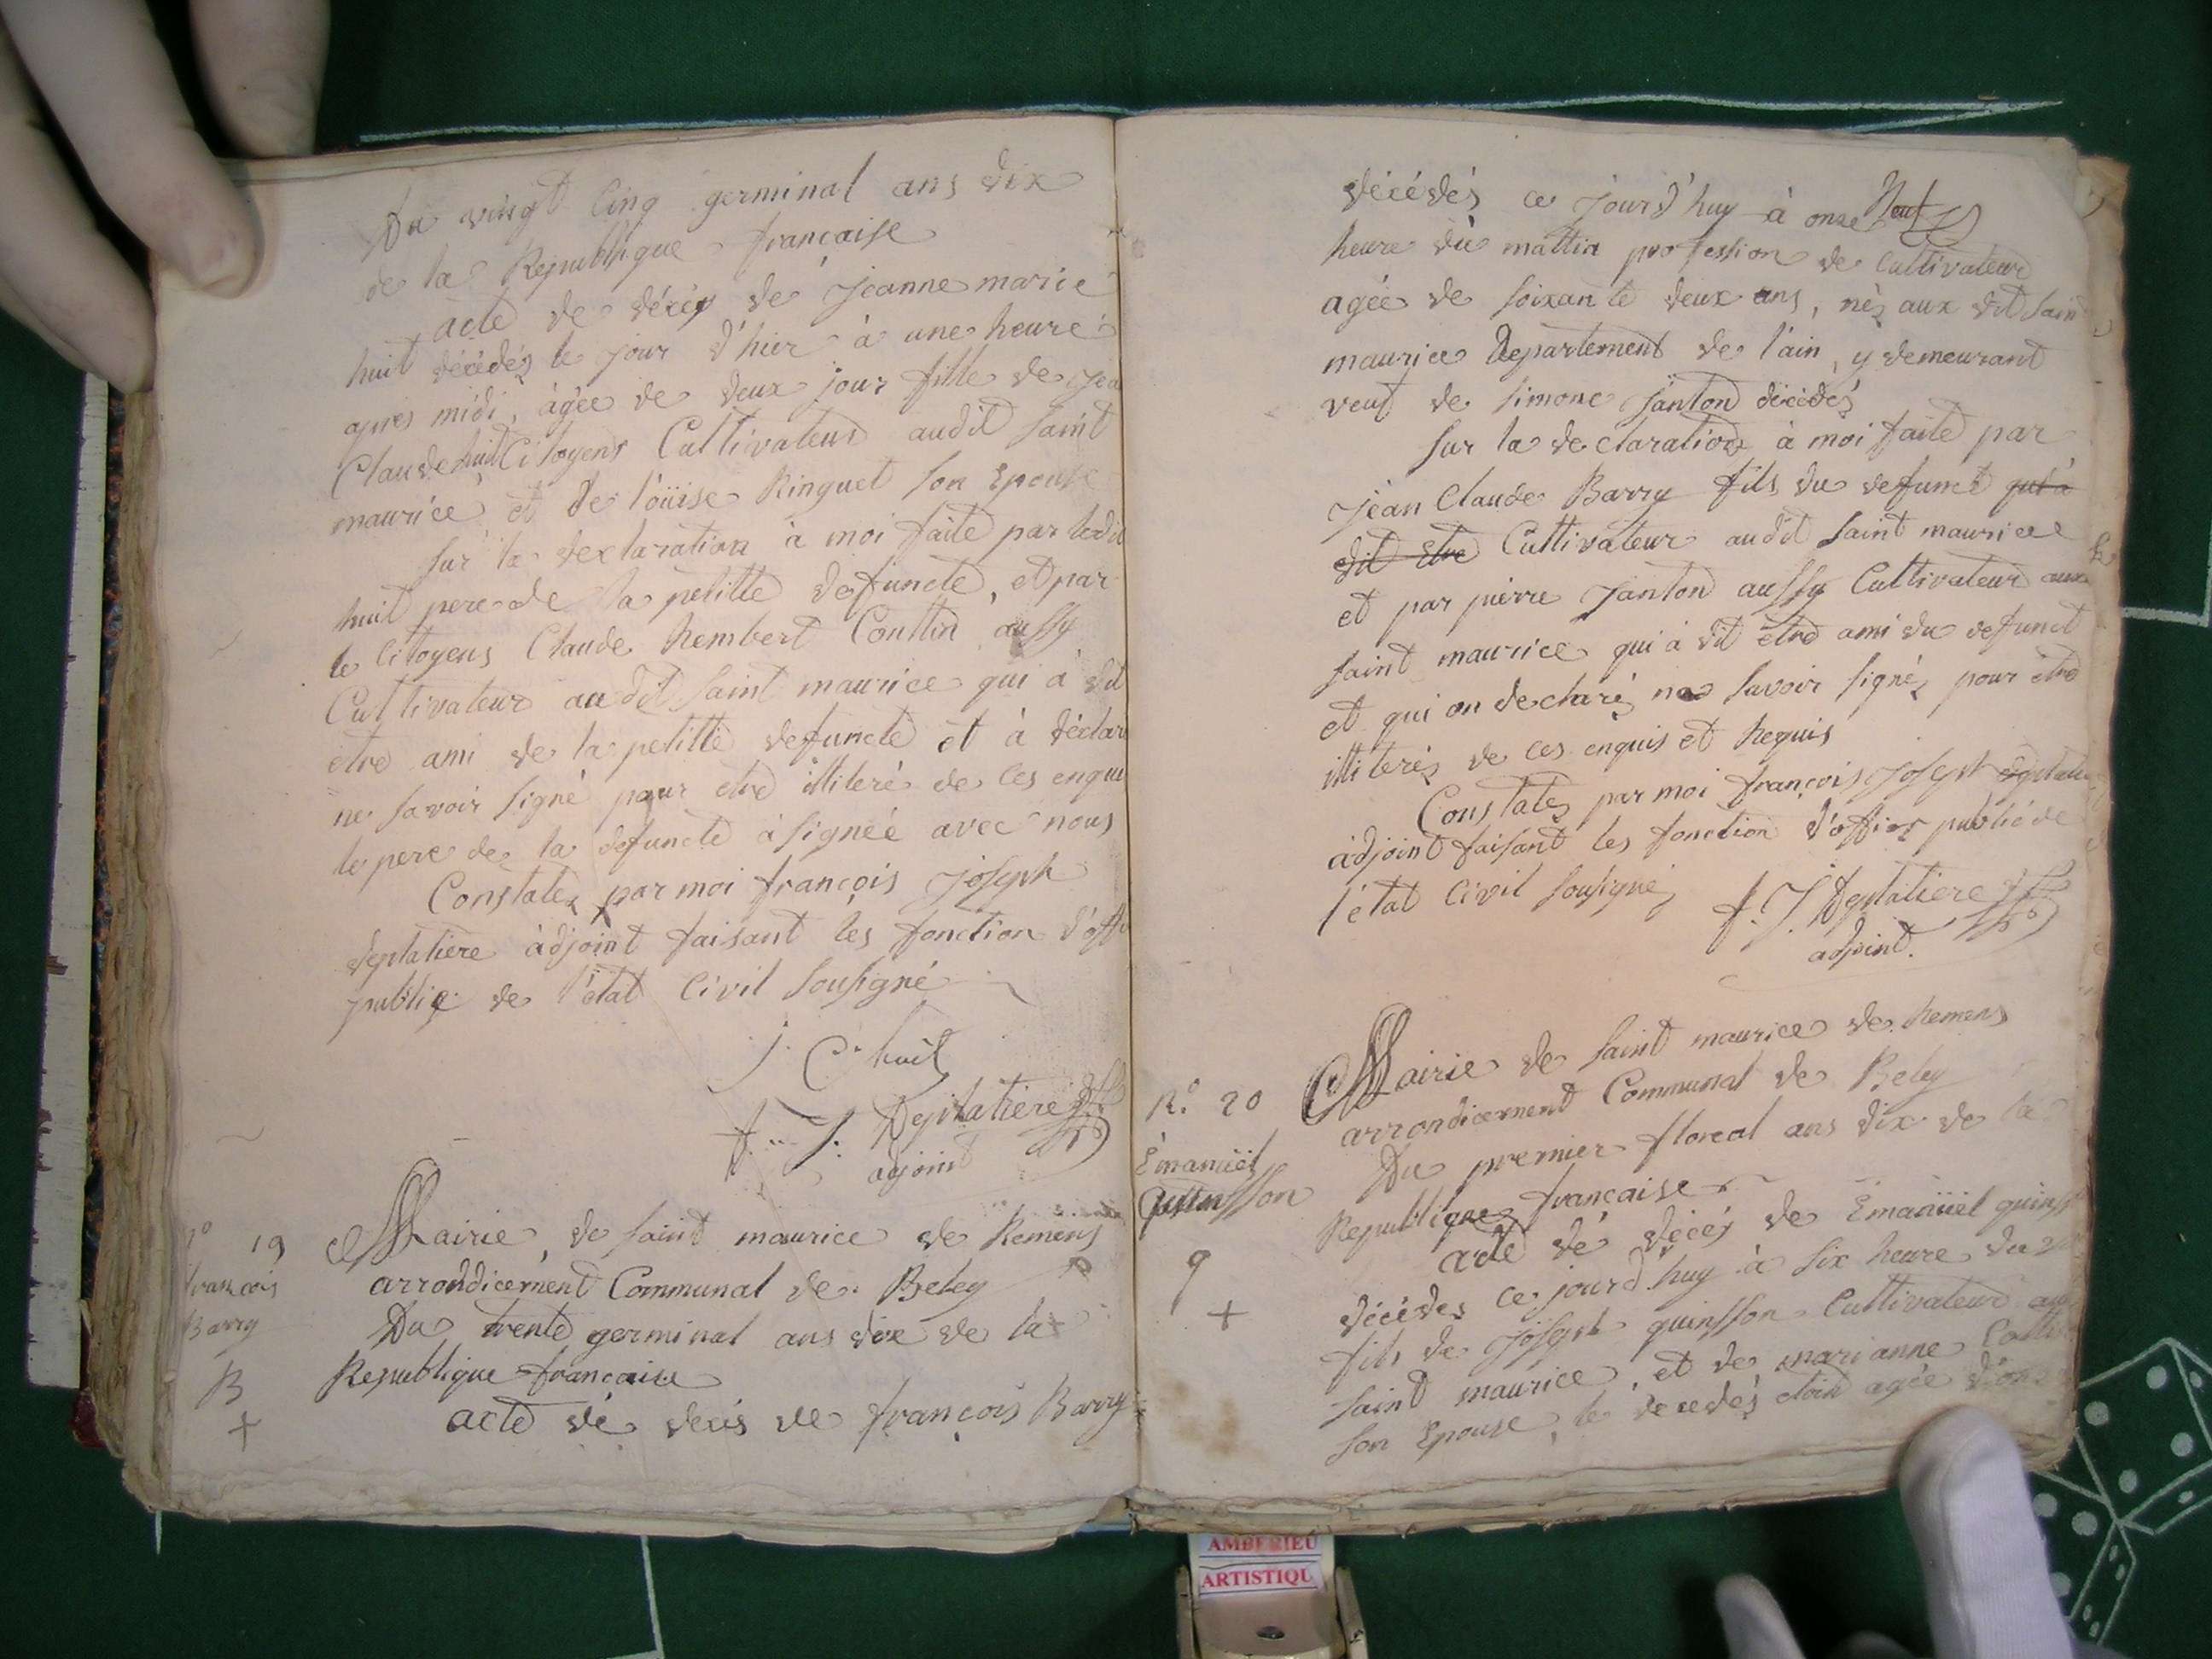 Du vingt Cinq germinal ans dix
de la République française
acte de décéy de Jeanne marie
huit décédéz le jour d'hier à une heure
apres midi, âgée de deux jour fille de Jea
Claude huit Citoyens Cultivateur audit saint
maurice et de loüise Ringuet son Epouse
sur la declaration à moi faite par ledit
huit pere de la petitte defuncte, et par
le Citoyens Claude hembert Couttin aussy
Cultivateur audit saint maurice qui à dit
etre ami de la petitte defuncte et à déclar
ne savoir signé pour etre illiteré de ces enqui
le pere de la defuncte à signéé avec nous
Constatez par moi françois Joseph
deplatiere àdjoint faisant les fonction d'offi
publiq de l'état Civil sousigné
J. C. huit
f. J. Deplatiere
adjoint
N° 19
francois
Barry
B
+
Mairie, de saint maurice de Remens
arrondicement Communal de Beley
Du trente germinal ans dix de la
Republique francaise
acte dé decés de françois Barry
décédés ce jourd'huy à onze neuf
heure du mattin profession de Cultivateur
agée de soixante deux ans, nés aux dit sain
maurice Departement de l'ain, y demeurant
veuf de simone janton décédés
sur la declaration à moi faite par
Jean Claude Barry fils du defunct qui à
dit etre Cultivateur audit saint maurice
et par pierre Janton aussy Cultivateur aux
saint maurice qui à dit etre ami du defunct
et qui on declaréz ne savoir signéz pour etre
illiteréz de ces enquis et Requis
Constatez par moi françois Joseph deplatie
àdjoint faisant les fonction d'officer public de
l'état Civil sousigné
f. J. Deplatiere
adjoint.
N.° 20
Emanüel
quinsson
9
+
Mairie de saint maurice de Remens
arrondicement Communal de Beley
Du premier floreal ans dix de la
Republique française
acte dé décés de Emanüel quinss
décédes ce jourd'huy à six heure du
fils de Joseph quinsson Cultivateur au
saint maurice, et de marianne
son Epouse, le decedés etoit agée
AMBERIEU
ARTISTIQU